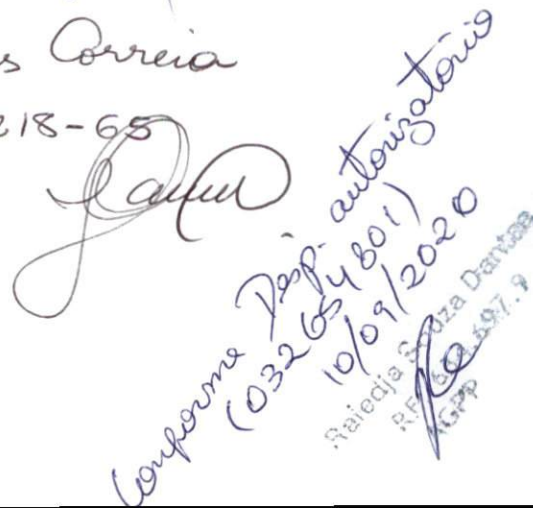 s Correia
218-65
Conforme Desp. autorizatório
(032654801)
10/09/2020
Raiedja Souza Dantas
RF
AGPP